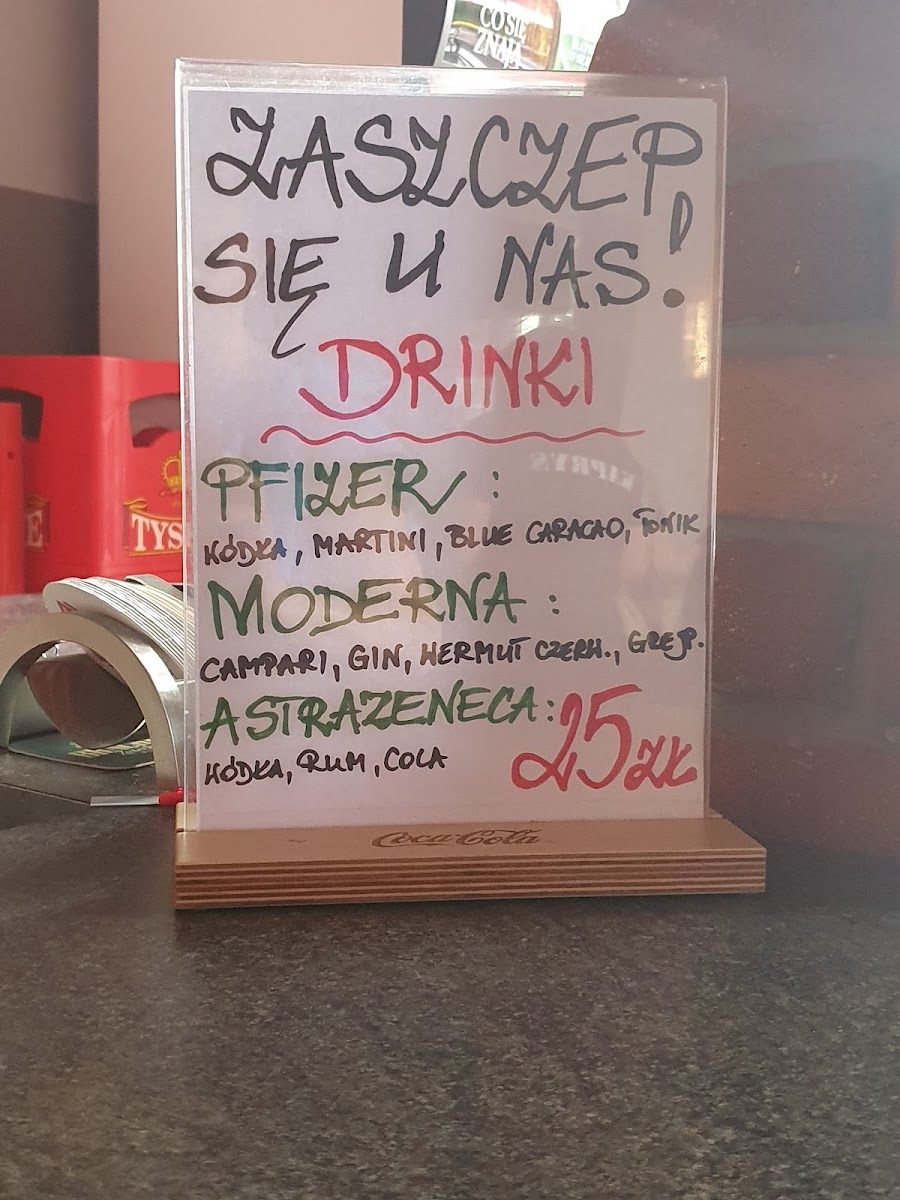 CO SIĘ
ZNAJĄ
ZASZCZEP
SIĘ U NAS!
DRINKI
PFIZER:
WÓDKA, MARTINI, BLUE CARACAO, TONIK
MODERNA:
CAMPARI, GIN, WERMUT CZERW., GREJP.
ASTRAZENECA:
WÓDKA, RUM, COLA
25 ZŁ
TYS
E
Coca-Cola